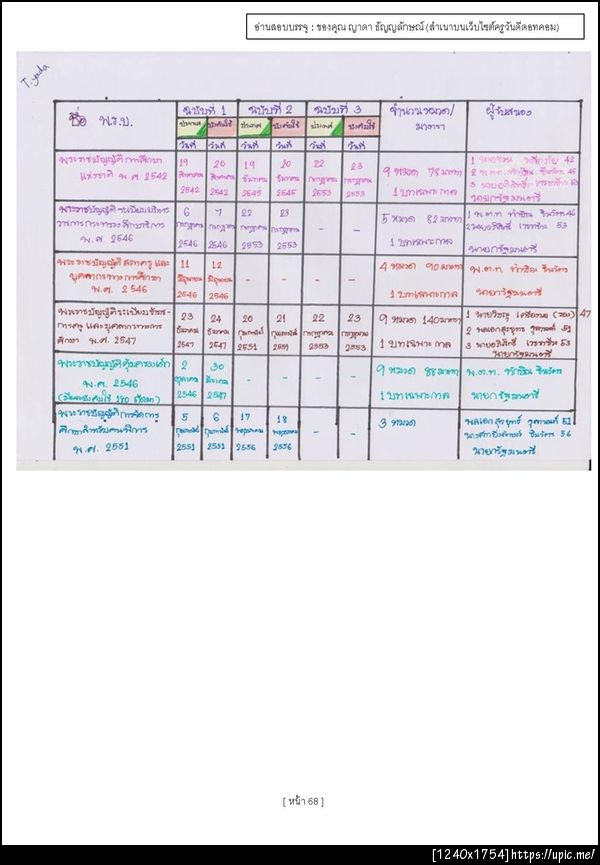 อ่านสอบบรรจุ : ของคุณ ญาดา ธัญญลักษณ์ (สำเนาบนเว็บไซต์ครูวันดีดอทคอม)
T.yada
ชื่อ พ.ร.บ. ฉบับที่ 1 ฉบับที่ 2 ฉบับที่ 3 จำนวนหมวด/ ผู้รับสนอง
ประกาศ บังคับใช้ ประกาศ บังคับใช้ ประกาศ บังคับใช้ มาตรา
วันที่ วันที่ วันที่ วันที่ วันที่ วันที่
พระราชบัญญัติการศึกษา 19 20 19 20 22 23 9 หมวด 78 มาตรา 1 นายชวน หลีกภัย 42
แห่งชาติ พ.ศ. 2542 สิงหาคม สิงหาคม ธันวาคม ธันวาคม กรกฎาคม กรกฎาคม 2 พ.ต.ท ทักษิณ ชินวัตร 45
2542 2542 2545 2545 2553 2553 1 บทเฉพาะกาล 3 นายอภิสิทธิ์ เวชชาชีวะ 53
นายกรัฐมนตรี
พระราชบัญญัติระเบียบบริหาร 6 7 22 23 - - 5 หมวด 82 มาตรา พ.ต.ท ทักษิณ ชินวัตร 46
ราชการกระทรวงศึกษาธิการ กรกฎาคม กรกฎาคม กรกฎาคม กรกฎาคม นายอภิสิทธิ์ เวชชาชีวะ 53
พ.ศ. 2546 2546 2546 2553 2553 1 บทเฉพาะกาล นายกรัฐมนตรี
พระราชบัญญัติสภาครู และ 11 12 - - - - 4 หมวด 90 มาตรา พ.ต.ท. ทักษิณ ชินวัตร
บุคลากรทางการศึกษา มิถุนายน มิถุนายน
พ.ศ. 2546 2546 2546 1 บทเฉพาะกาล นายกรัฐมนตรี
พระราชบัญญัติระเบียบข้าราช- 23 24 20 21 22 23 9 หมวด 140 มาตรา 1 นายวิษณุ เครืองาม (รอง) 47
การครู และบุคลากรทางการ ธันวาคม ธันวาคม กุมภาพันธ์ กุมภาพันธ์ กรกฎาคม กรกฎาคม 2 พลเอกสุรยุทธ จุลานนท์ 51
ศึกษา พ.ศ. 2547 2547 2547 2551 2551 2553 2553 1 บทเฉพาะกาล 3 นายอภิสิทธิ์ เวชชาชีวะ 53
นายกรัฐมนตรี
พระราชบัญญัติคุ้มครองเด็ก 2 30 - - - - 9 หมวด 88 มาตรา พ.ต.ท. ทักษิณ ชินวัตร
พ.ศ. 2546 ตุลาคม มีนาคม
2546 2547 1 บทเฉพาะกาล นายกรัฐมนตรี
พระราชบัญญัติการจัดการ 5 6 17 18 - - 3 หมวด พลเอกสุรยุทธ์ จุลานนท์ 51
ศึกษาสำหรับคนพิการ กุมภาพันธ์ กุมภาพันธ์ พฤษภาคม พฤษภาคม นางสาวยิ่งลักษณ์ ชินวัตร 56
พ.ศ. 2551 2551 2551 2556 2556 นายกรัฐมนตรี
[ หน้า 68 ]
[1240x1754]https://upic.me/